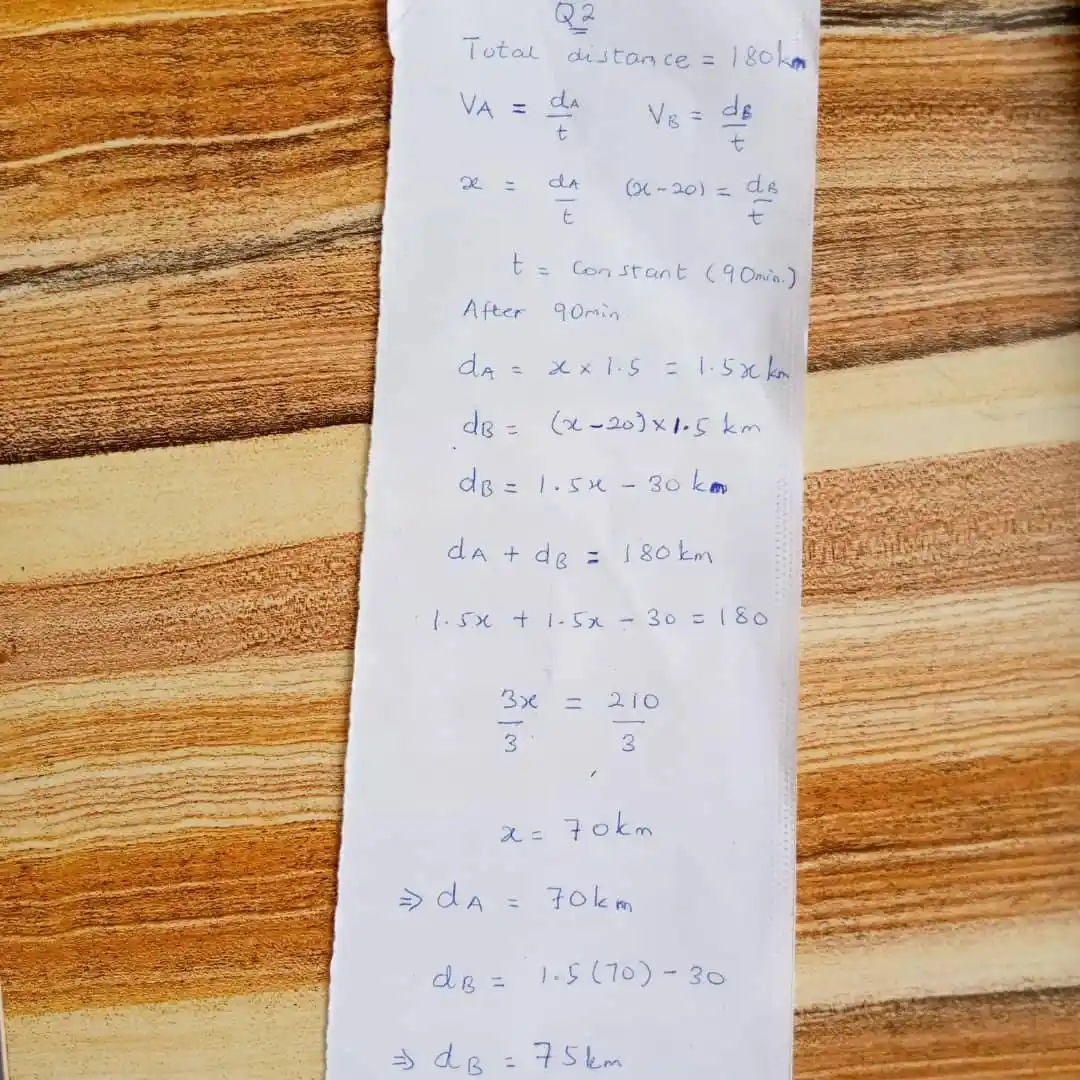 Q2
Total distance = 180km
VA = dA/t VB = dB/t
x = dA/t (x-20) = dB/t
t = Constant (90min.)
After 90min
dA = x × 1.5 = 1.5x km
dB = (x-20)×1.5 km
dB = 1.5x - 30 km
dA + dB = 180km
1.5x + 1.5x - 30 = 180
3x/3 = 210/3
x = 70km
⇒ dA = 70km
dB = 1.5(70) - 30
⇒ dB = 75km